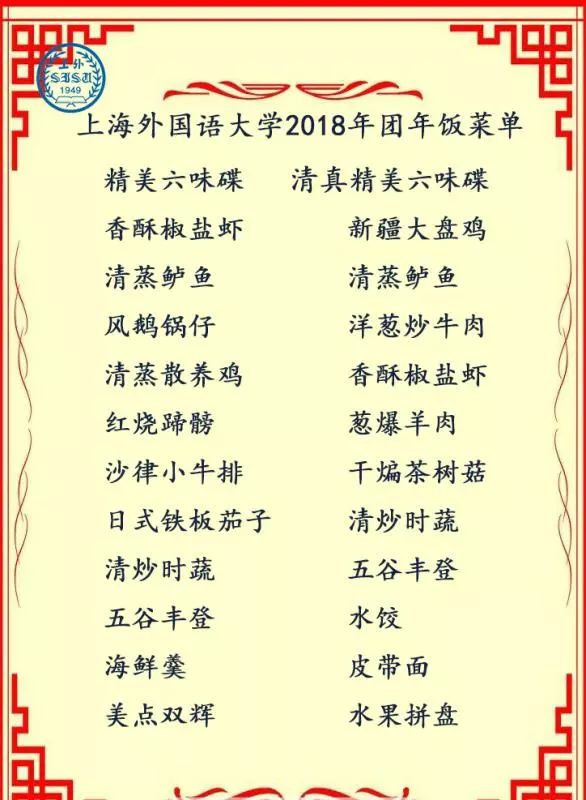 上外
SISU
1949
上海外国语大学2018年团年饭菜单
精美六味碟 清真精美六味碟
香酥椒盐虾 新疆大盘鸡
清蒸鲈鱼 清蒸鲈鱼
风鹅锅仔 洋葱炒牛肉
清蒸散养鸡 香酥椒盐虾
红烧蹄髈 葱爆羊肉
沙律小牛排 干煸茶树菇
日式铁板茄子 清炒时蔬
清炒时蔬 五谷丰登
五谷丰登 水饺
海鲜羹 皮带面
美点双辉 水果拼盘